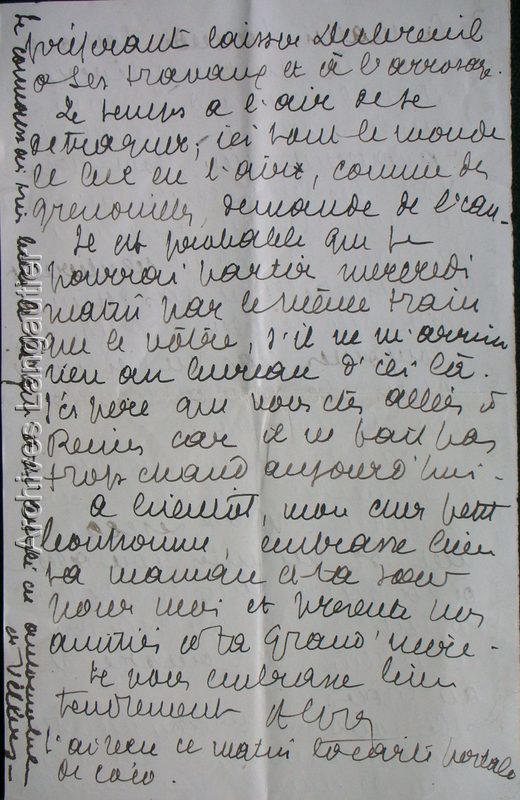 préférant laisser Dubreuil
à ses travaux et à l'arrosage.
Le temps a l'air de se
détraquer; ici tout le monde
le bec en l'air, comme des
grenouilles, demande de l'eau -
Il est probable que je
pourrai partir mercredi
matin par le même train
que le vôtre, s'il ne m'arrive
rien au bureau d'ici là.
J'espère que vous êtes allés à
Reims car il ne fait pas
trop chaud aujourd'hui -
A bientôt, mon cher petit
bonhomme, embrasse bien
ta maman et ta soeur
pour moi et présente mes
amitiés à ta grand'mère -
Je vous embrasse bien
tendrement
J'ai reçu ce matin la carte postale
de coco.
Je connais très bien la
en automobile
de Villers -
Archives Lengautier